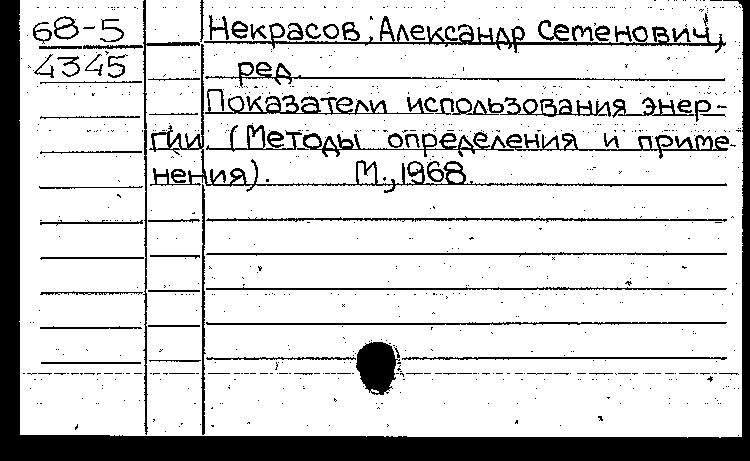 68-5 Некрасов, Александр Семенович,
4345 ред.
Показатели использования энер-
гии. (Методы определения и приме
нения). М., 1968.